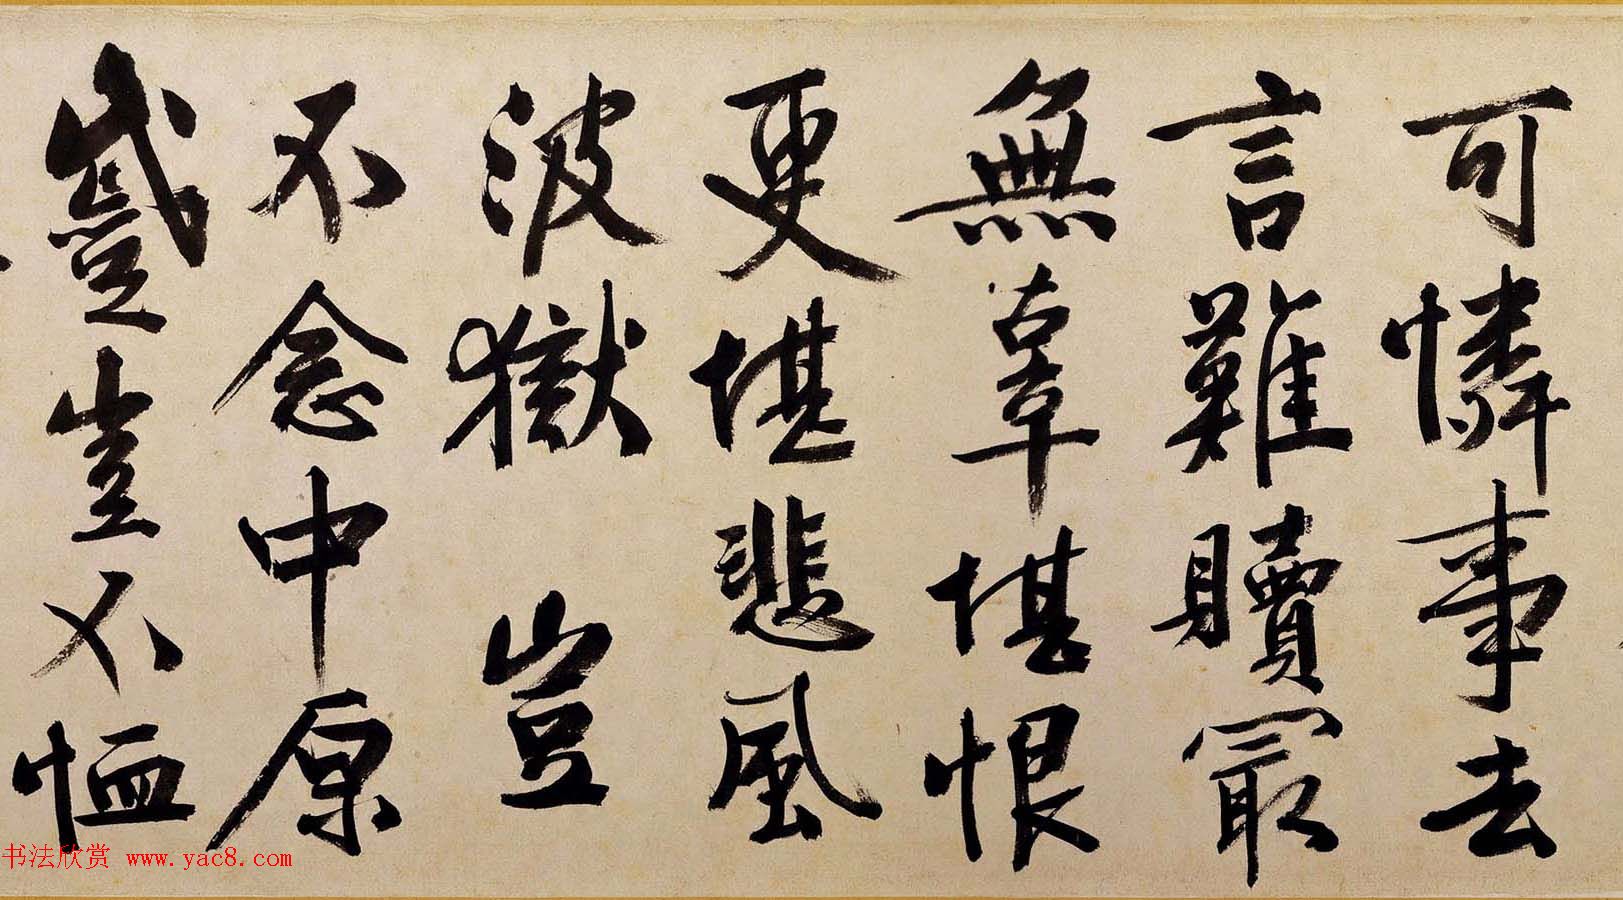 可憐事去
言難贖最
無辜堪恨
更堪悲風
波獄豈
不念中原
蹙豈不恤
书法欣赏 www.yac8.com